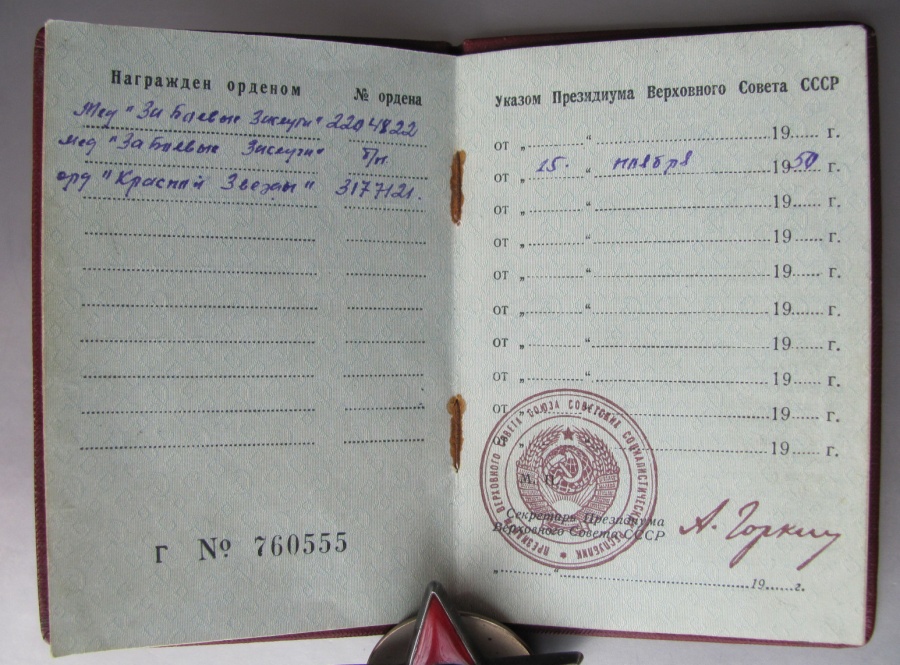 Награжден орденом
№ ордена
Мед "За Боевые Заслуги" 2204822
мед "За Боевые Заслуги" б/н.
орд "Красной Звезды" 3177121.
Г № 760555
Указом Президиума Верховного Совета СССР
от „ “ 19 г.
от „ 15. “ ноября 1950 г.
от „ “ 19 г.
от „ “ 19 г.
от „ “ 19 г.
от „ “ 19 г.
от „ “ 19 г.
от „ “ 19 г.
от „ “ 19 г.
от „ “ 19 г.
ПРЕЗИДИУМ ВЕРХОВНОГО СОВЕТА СОЮЗА СОВЕТСКИХ СОЦИАЛИСТИЧЕСКИХ РЕСПУБЛИК
М. П.
Секретарь Президиума
Верховного Совета СССР
А. Горкин
„ “ 19 г.